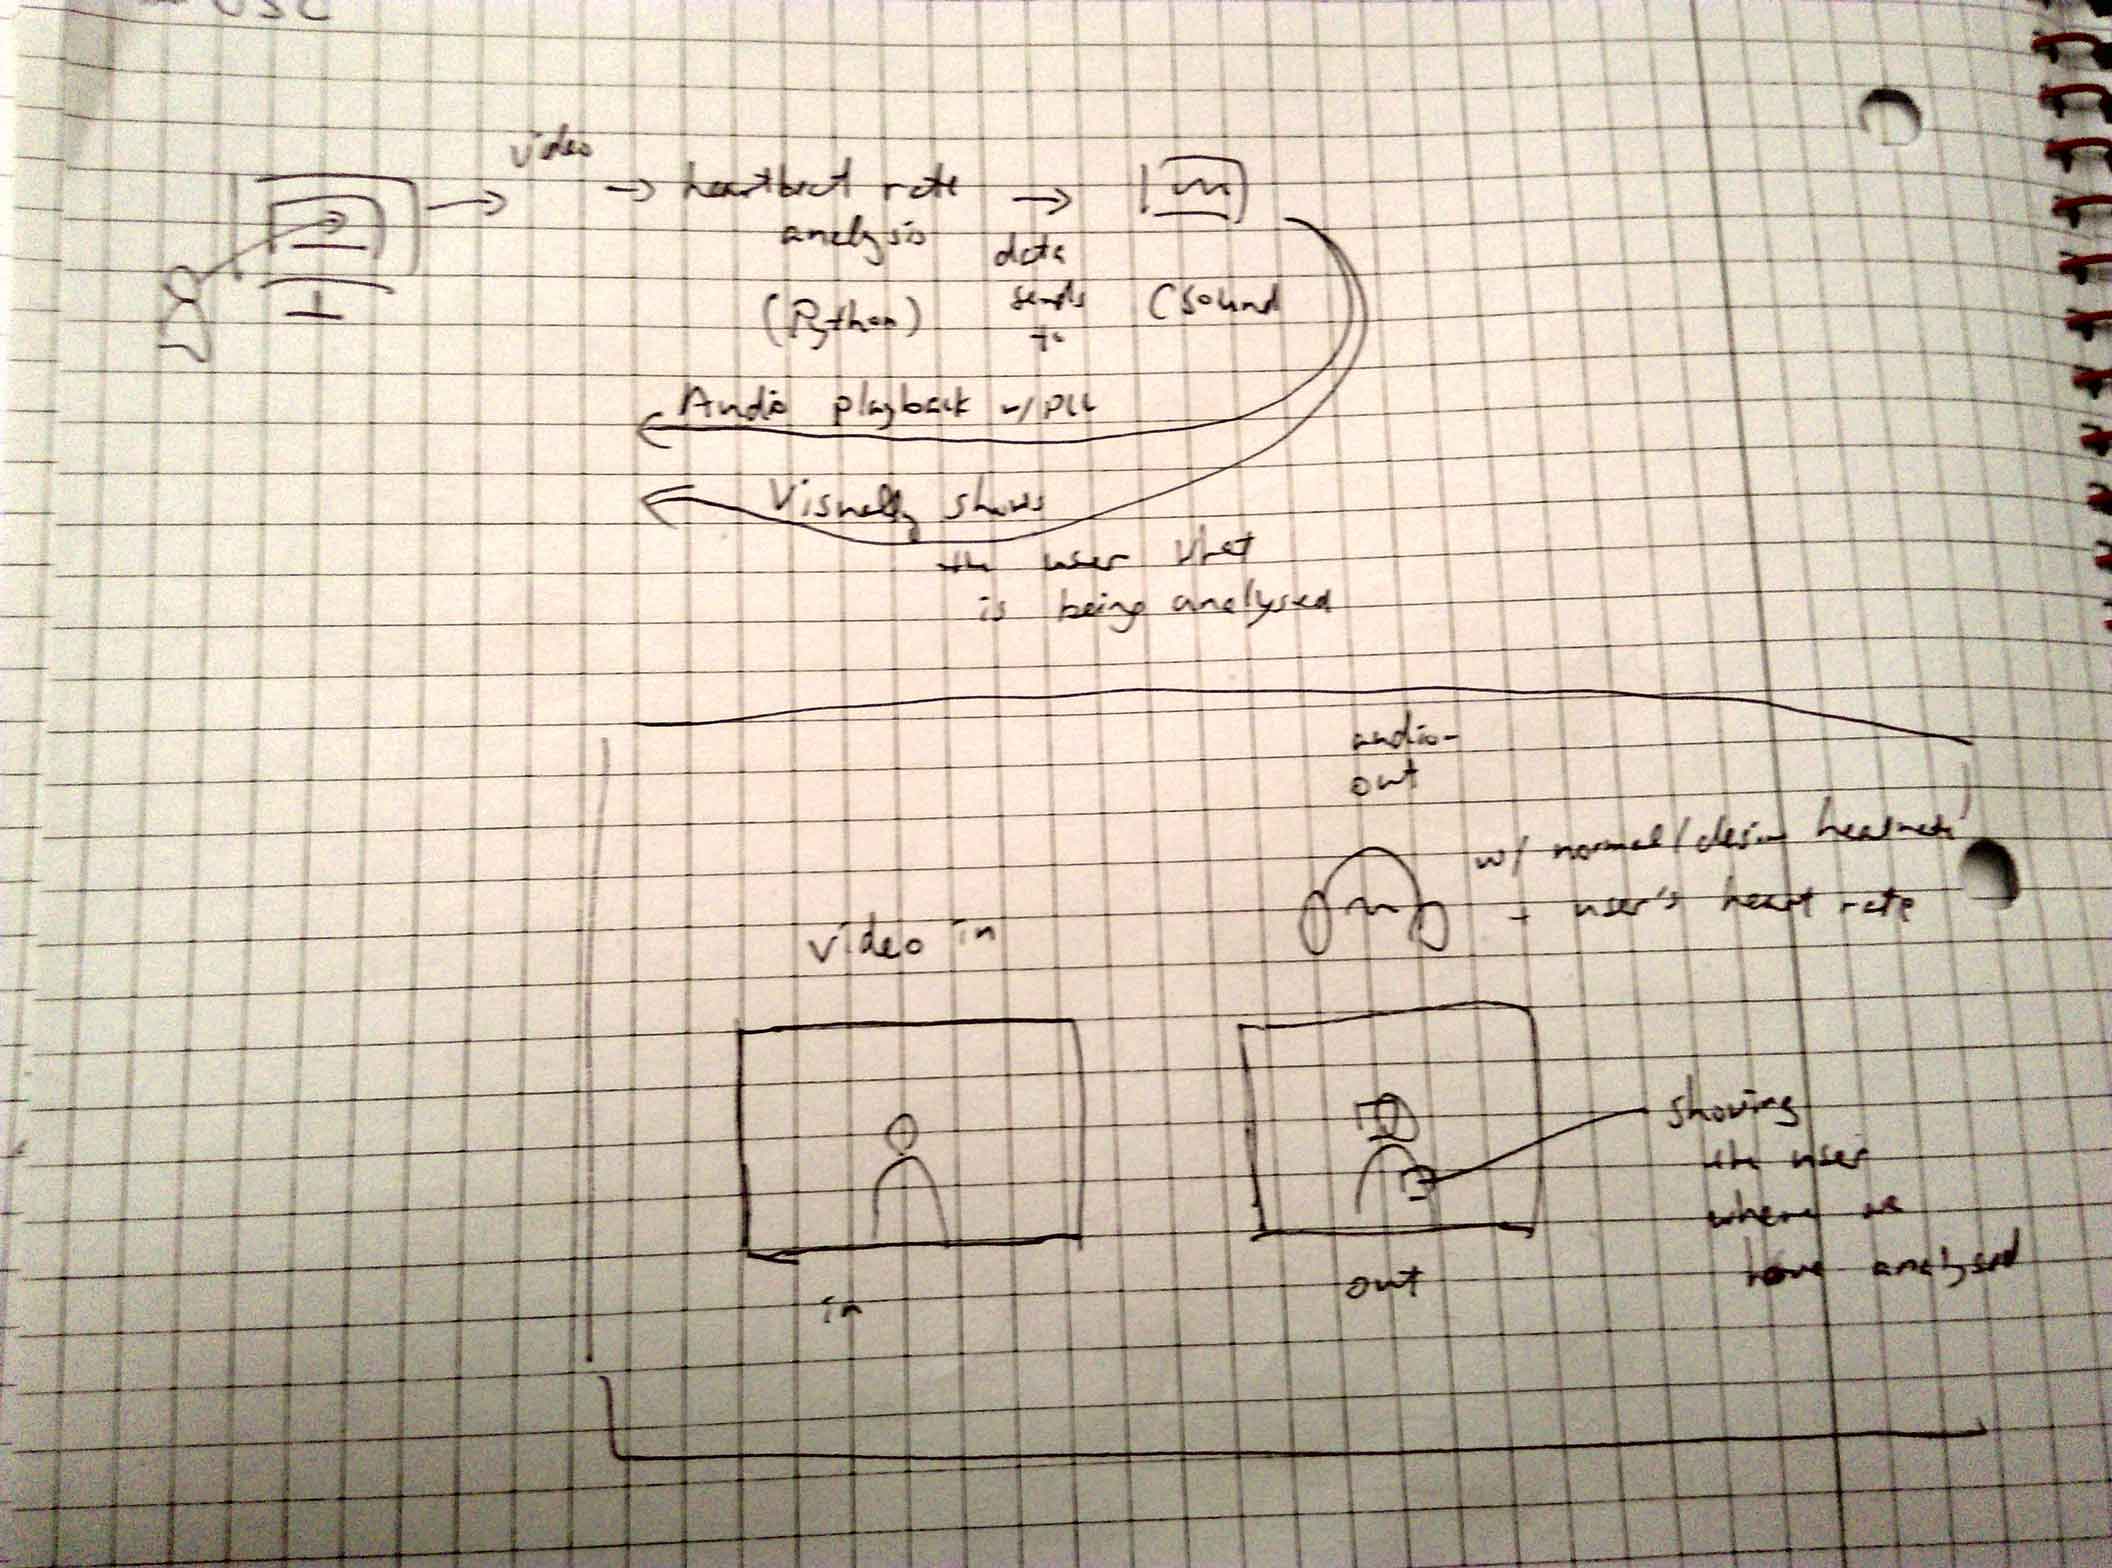 video
heartbeat rate
analysis
(Python)
data
sends
to
(Sound
Audio playback w/
Visually shows
the user what
is being analysed
audio-
out
w/ normal/
+ user's heart rate
video in
in
out
showing
the user
where we
have analysed